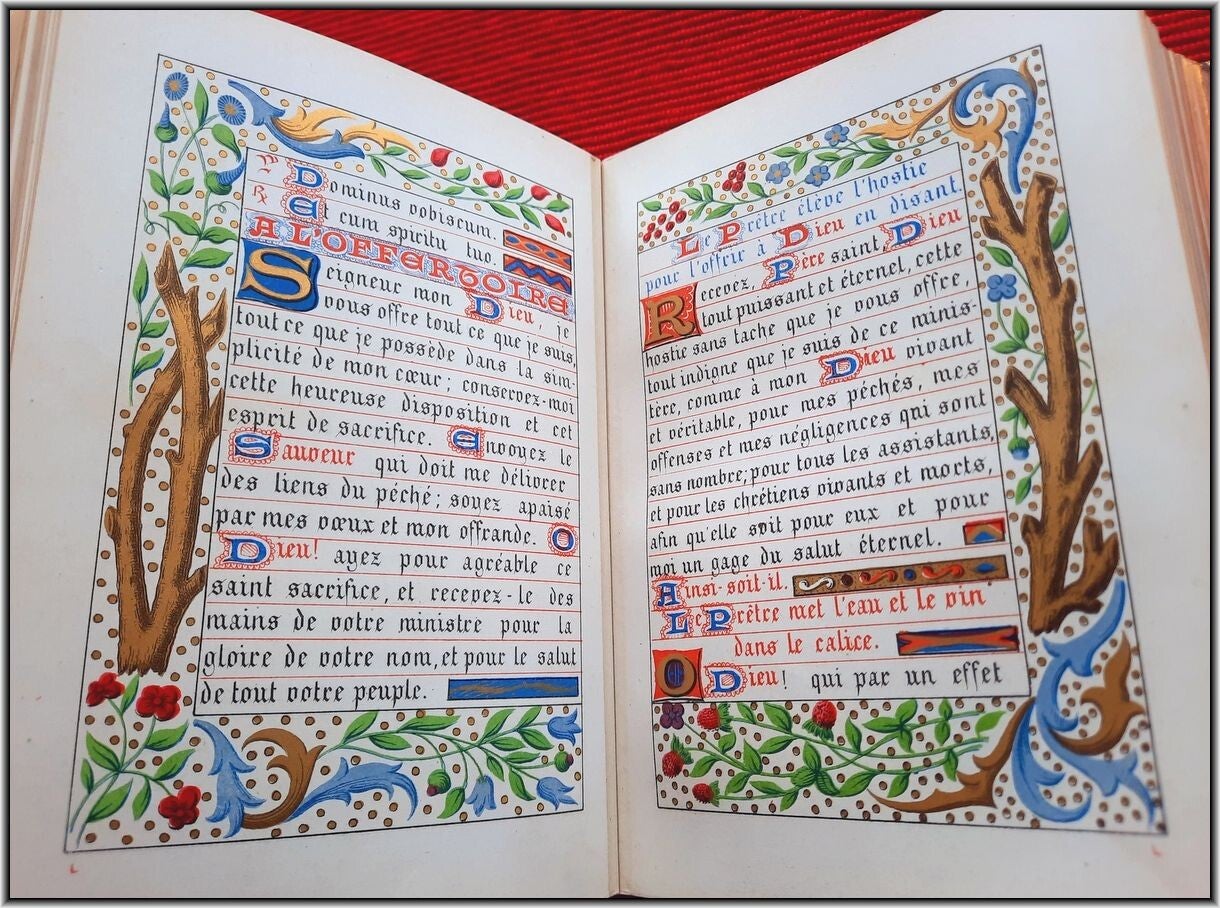 ℣ Dominus vobiscum.
℟ Et cum spiritu tuo.
A L'OFFERTOIRE
Seigneur mon Dieu, je
vous offre tout ce que je suis,
tout ce que je possède dans la sim-
plicité de mon cœur; conservez-moi
cette heureuse disposition et cet
esprit de sacrifice. Envoyez le
Sauveur qui doit me délivrer
des liens du péché; soyez apaisé
par mes vœux et mon offrande. O
Dieu! ayez pour agréable ce
saint sacrifice, et recevez-le des
mains de votre ministre pour la
gloire de votre nom, et pour le salut
de tout votre peuple.
Le Prêtre élève l'hostie
pour l'offrir à Dieu en disant.
Recevez, Père saint, Dieu
tout puissant et éternel, cette
hostie sans tache que je vous offre,
tout indigne que je suis de ce minis-
tère, comme à mon Dieu vivant
et véritable, pour mes péchés, mes
offenses et mes négligences qui sont
sans nombre; pour tous les assistants,
et pour les chrétiens vivants et morts,
afin qu'elle soit pour eux et pour
moi un gage du salut éternel.
Ainsi-soit-il.
Le Prêtre met l'eau et le vin
dans le calice.
O Dieu! qui par un effet